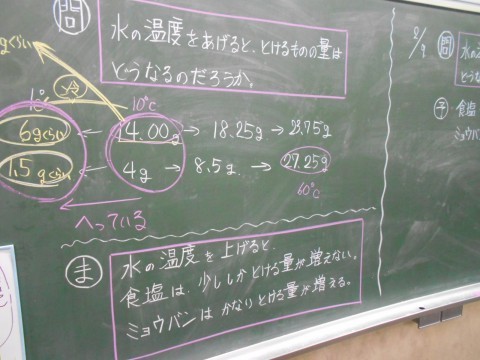 問
水の温度をあげると、とけるものの量は
どうなるのだろうか。
gくらい
冷
1℃
10℃
6gくらい ← 4.00g → 18.25g → 28.75g
1.5gくらい ← 4g → 8.5g → 27.25g
60℃
← へっている
ま
水の温度を上げると、
食塩は、少ししかとける量が増えない。
ミョウバンはかなりとける量が増える。
問
水の
どうな
予
食塩
ミョウバン